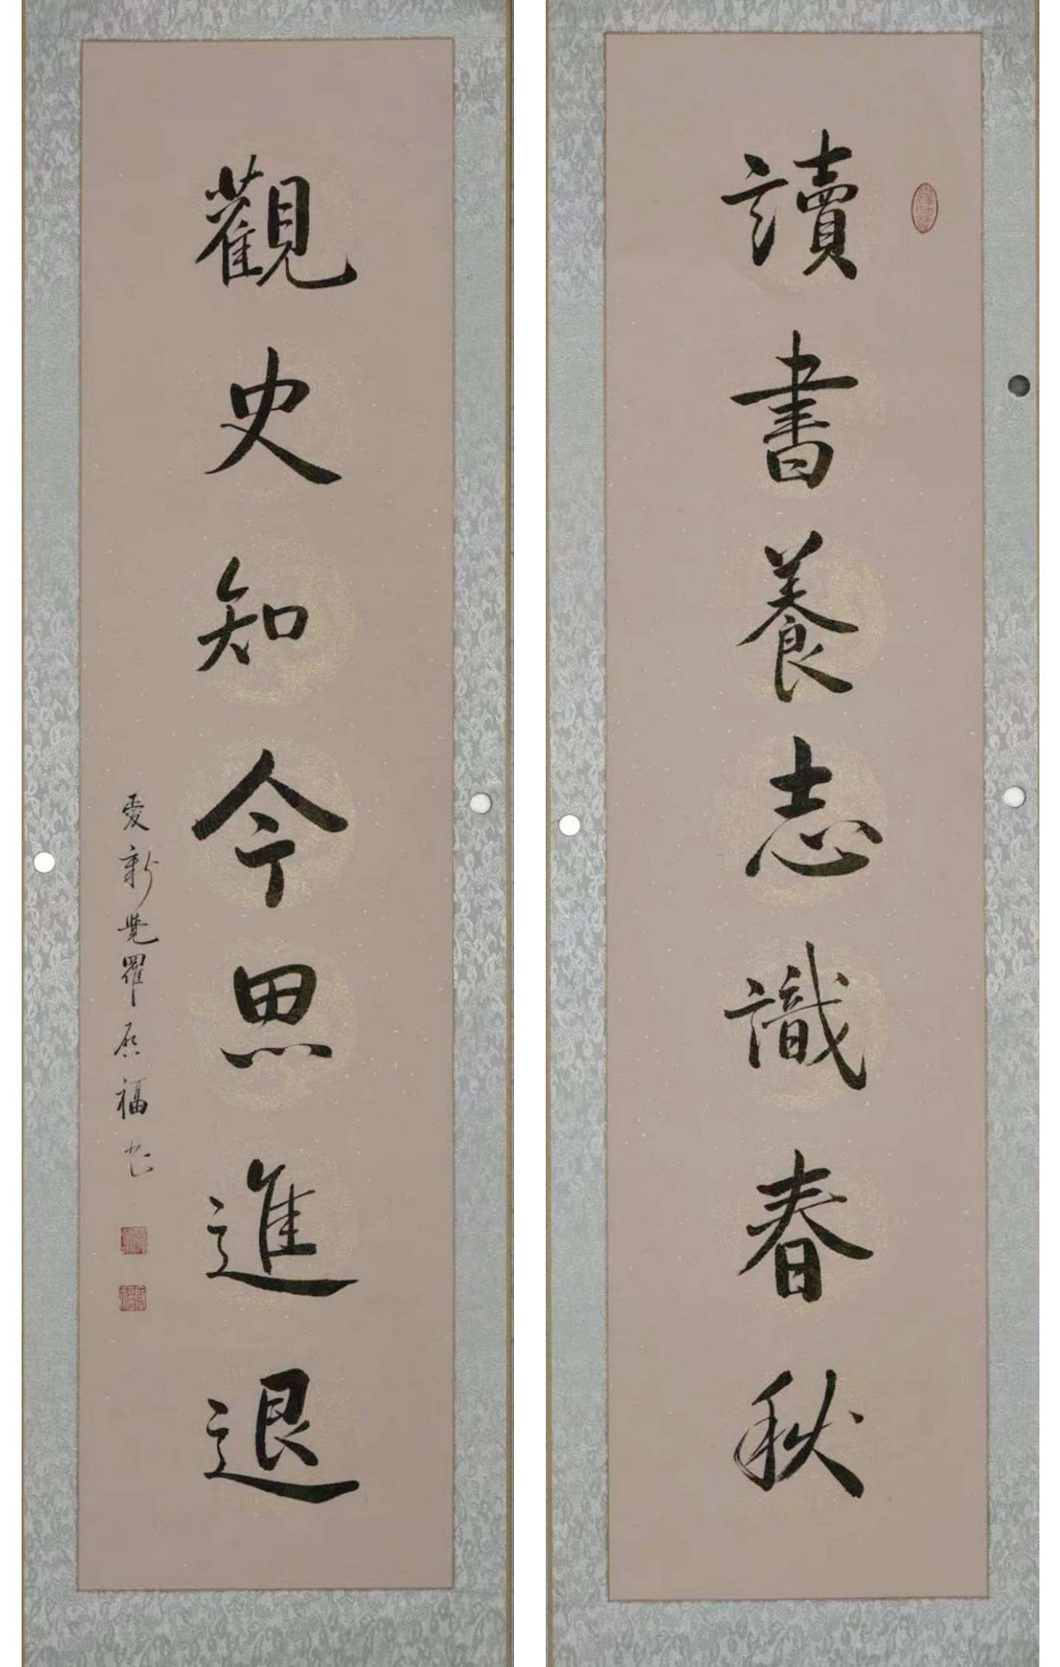 讀書養志識春秋
觀史知今思進退
愛新覺羅啟福書